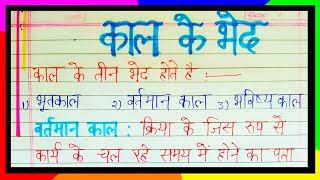 काल के भेद
काल के तीन भेद होते है :—
1) भूतकाल 2) वर्तमान काल 3) भविष्य काल
वर्तमान काल : क्रिया के जिस रुप से
कार्य के चल रहे समय में होने का पता